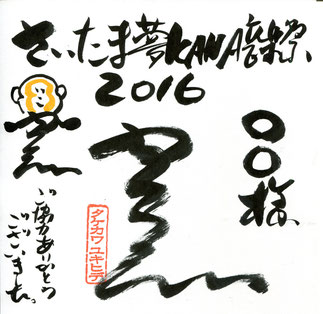 さいたま夢KANA音楽祭
2016
〇〇様
タケカワユキヒデ
ご協力ありがとう
ございました。